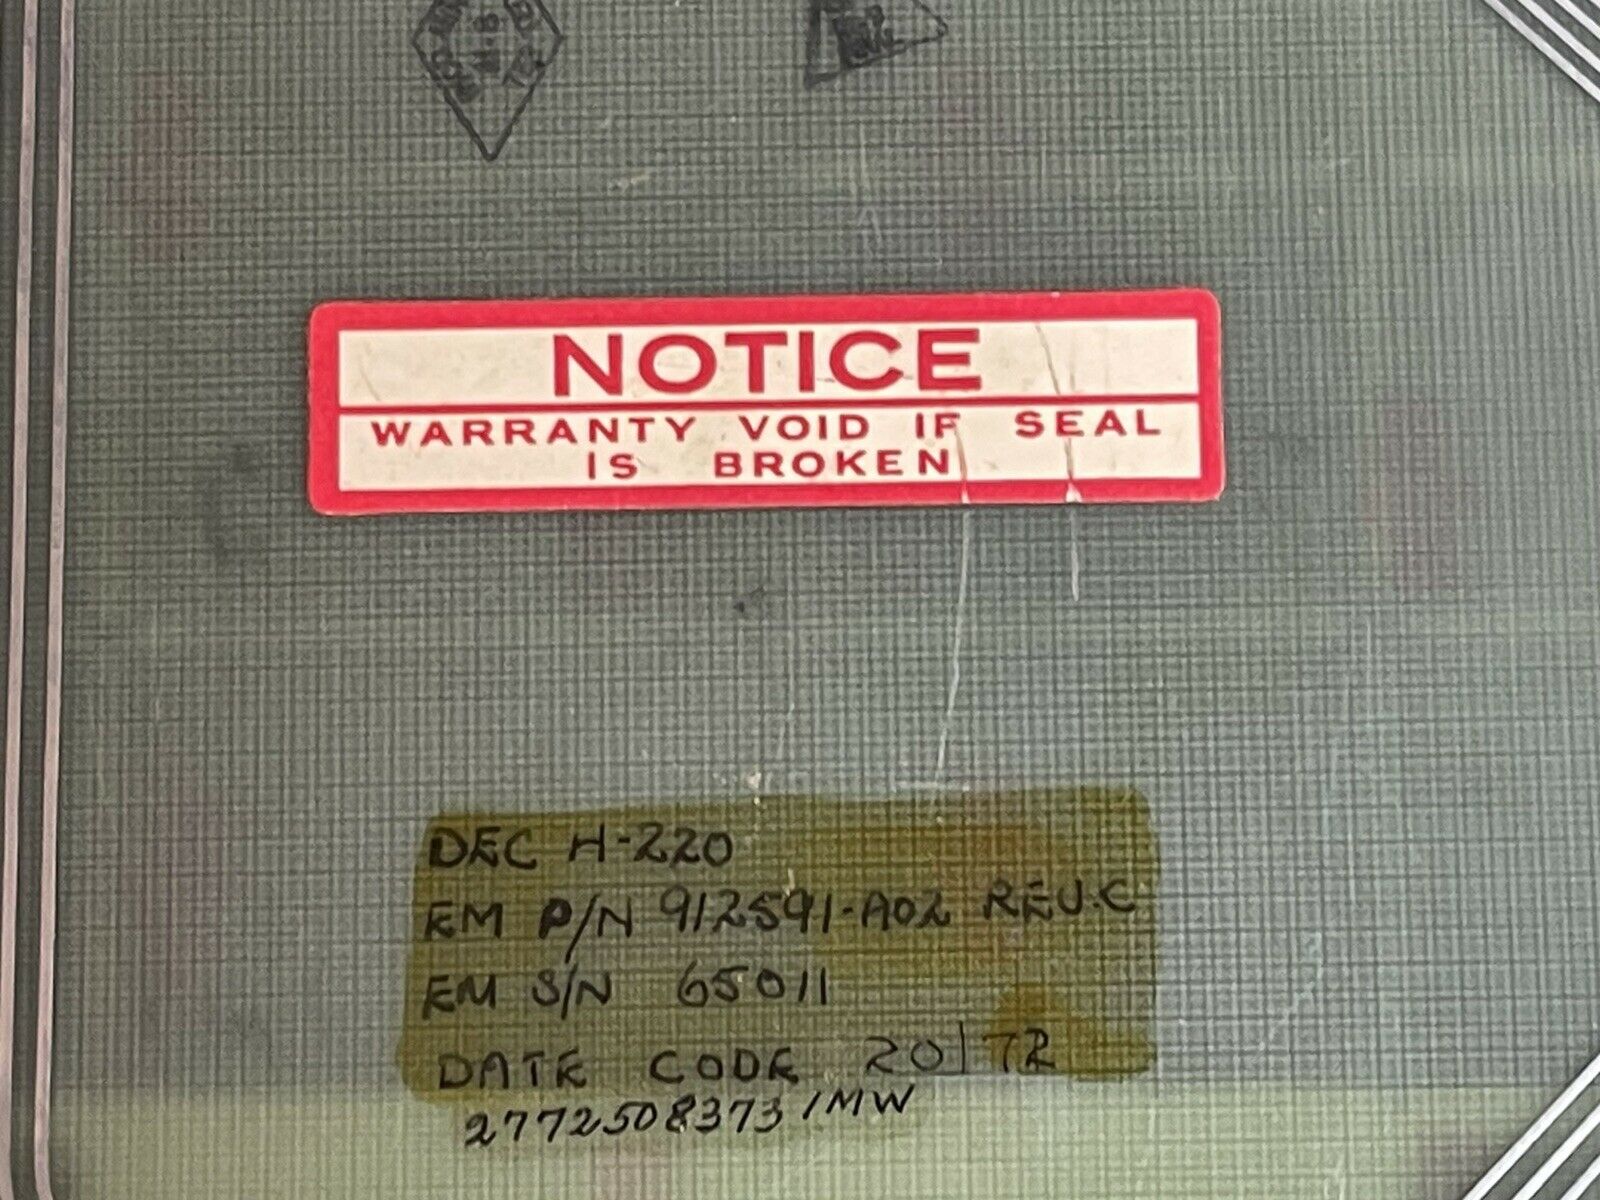 NOTICE
WARRANTY VOID IF SEAL
IS BROKEN
DEC H-220
EM P/N 912591-A02 REV.C
EM S/N 65011
DATE CODE 20/72
2772508373/MW